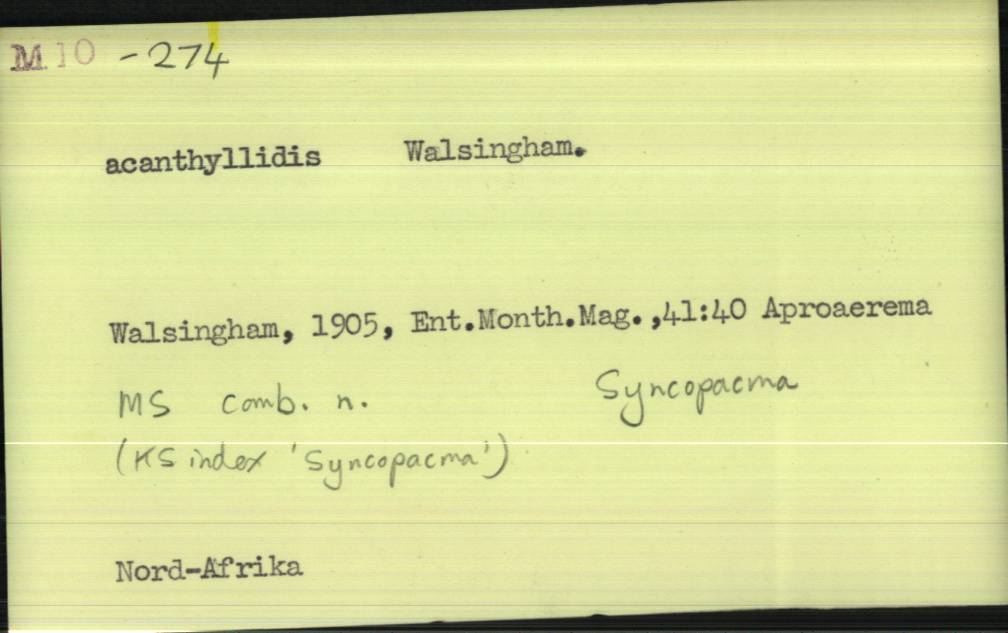 M 10 - 274
acanthyllidis Walsingham.
Walsingham, 1905, Ent.Month.Mag.,41:40 Aproaerema
MS comb. n. Syncopacma
(KS index 'Syncopacma')
Nord-Afrika